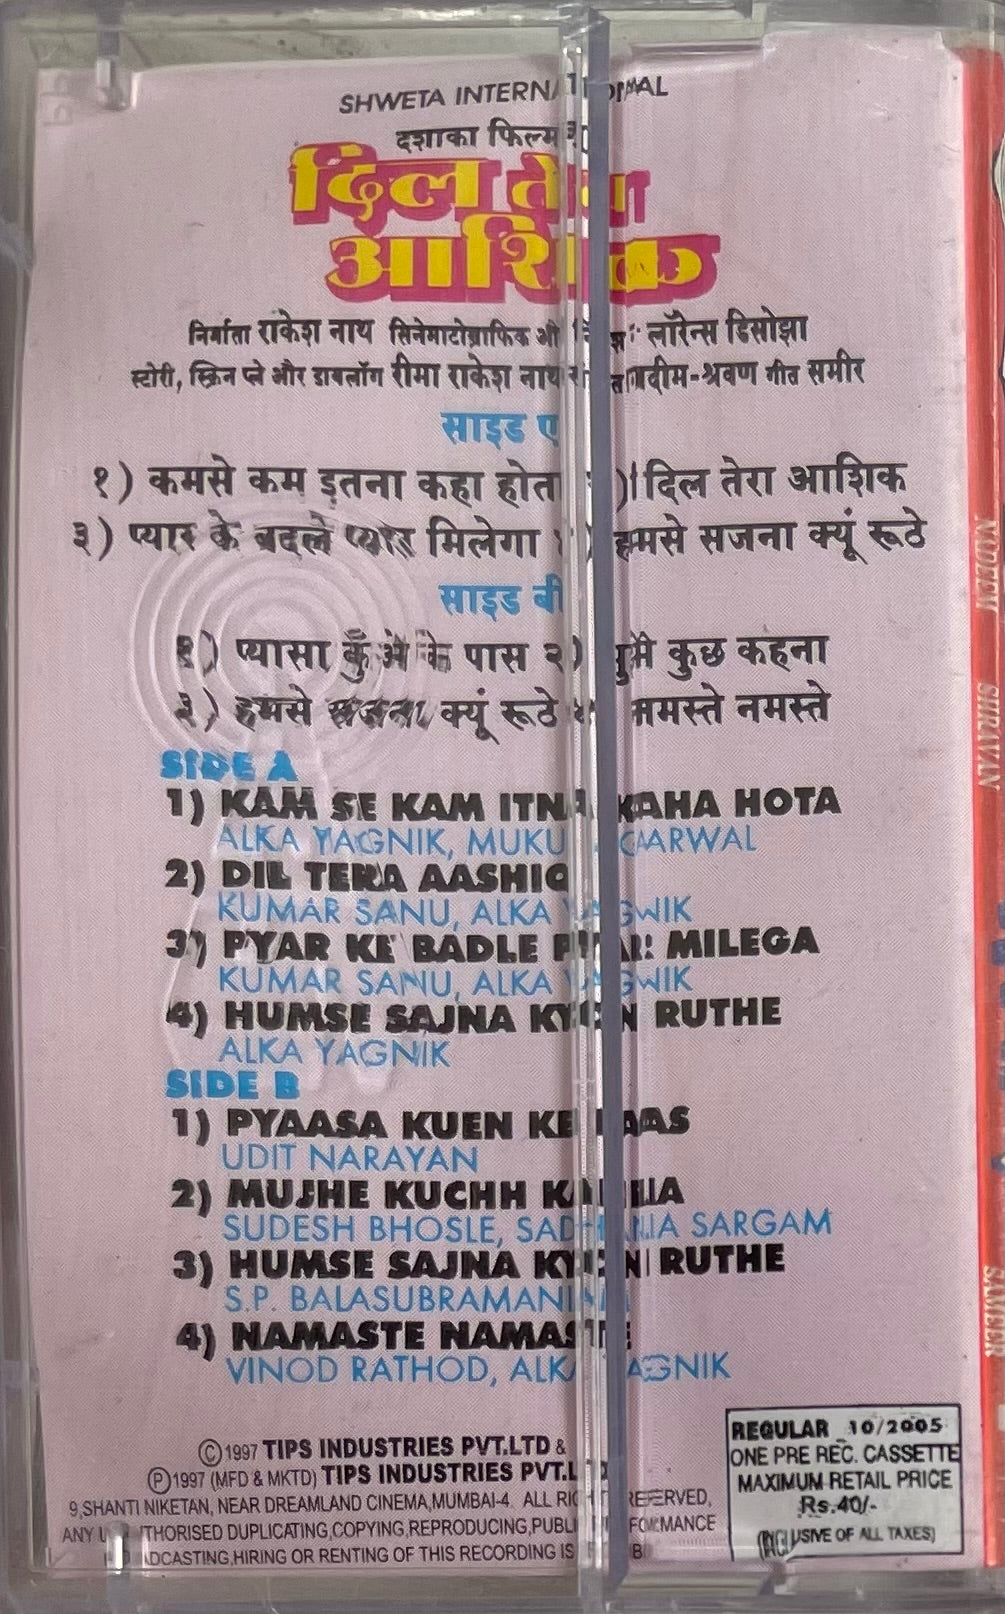 SHWETA INTERNATIONAL
दशाका फिल्म
दिल तेरा
आशिक
निर्माता राकेश नाथ सिनेमाटोग्राफिक लॉरेन्स डिसोझा
स्टोरी, स्क्रिन प्ले और डायलॉग रीमा राकेश नाथ नदीम-श्रवण गीत समीर
साइड ए
१) कमसे कम इतना कहा होता २) दिल तेरा आशिक
३) प्यार के बदले प्यार मिलेगा ४) हमसे सजना क्यूं रूठे
साइड बी
१) प्यासा कुँअे के पास २) मुझे कुछ कहना
३) हमसे सजना क्यूं रूठे ४) नमस्ते नमस्ते
SIDE A
1) KAM SE KAM ITNA KAHA HOTA
ALKA YAGNIK, MUKUL AGARWAL
2) DIL TERA AASHIQ
KUMAR SANU, ALKA YAGNIK
3) PYAR KE BADLE PYAR MILEGA
KUMAR SANU, ALKA YAGNIK
4) HUMSE SAJNA KYON RUTHE
ALKA YAGNIK
SIDE B
1) PYAASA KUEN KE PAAS
UDIT NARAYAN
2) MUJHE KUCHH KAHNA
SUDESH BHOSLE, SADHANA SARGAM
3) HUMSE SAJNA KYON RUTHE
S.P. BALASUBRAMANIAM
4) NAMASTE NAMASTE
VINOD RATHOD, ALKA YAGNIK
© 1997 TIPS INDUSTRIES PVT.LTD &
℗ 1997 (MFD & MKTD) TIPS INDUSTRIES PVT.LTD
9,SHANTI NIKETAN, NEAR DREAMLAND CINEMA,MUMBAI-4. ALL RIGHTS RESERVED,
ANY UNAUTHORISED DUPLICATING,COPYING,REPRODUCING,PUBLIC PERFORMANCE
BROADCASTING,HIRING OR RENTING OF THIS RECORDING IS
REGULAR 10/2005
ONE PRE REC. CASSETTE
MAXIMUM RETAIL PRICE
Rs.40/-
(INCLUSIVE OF ALL TAXES)
NADEEM SHRAVAN
SAMEER